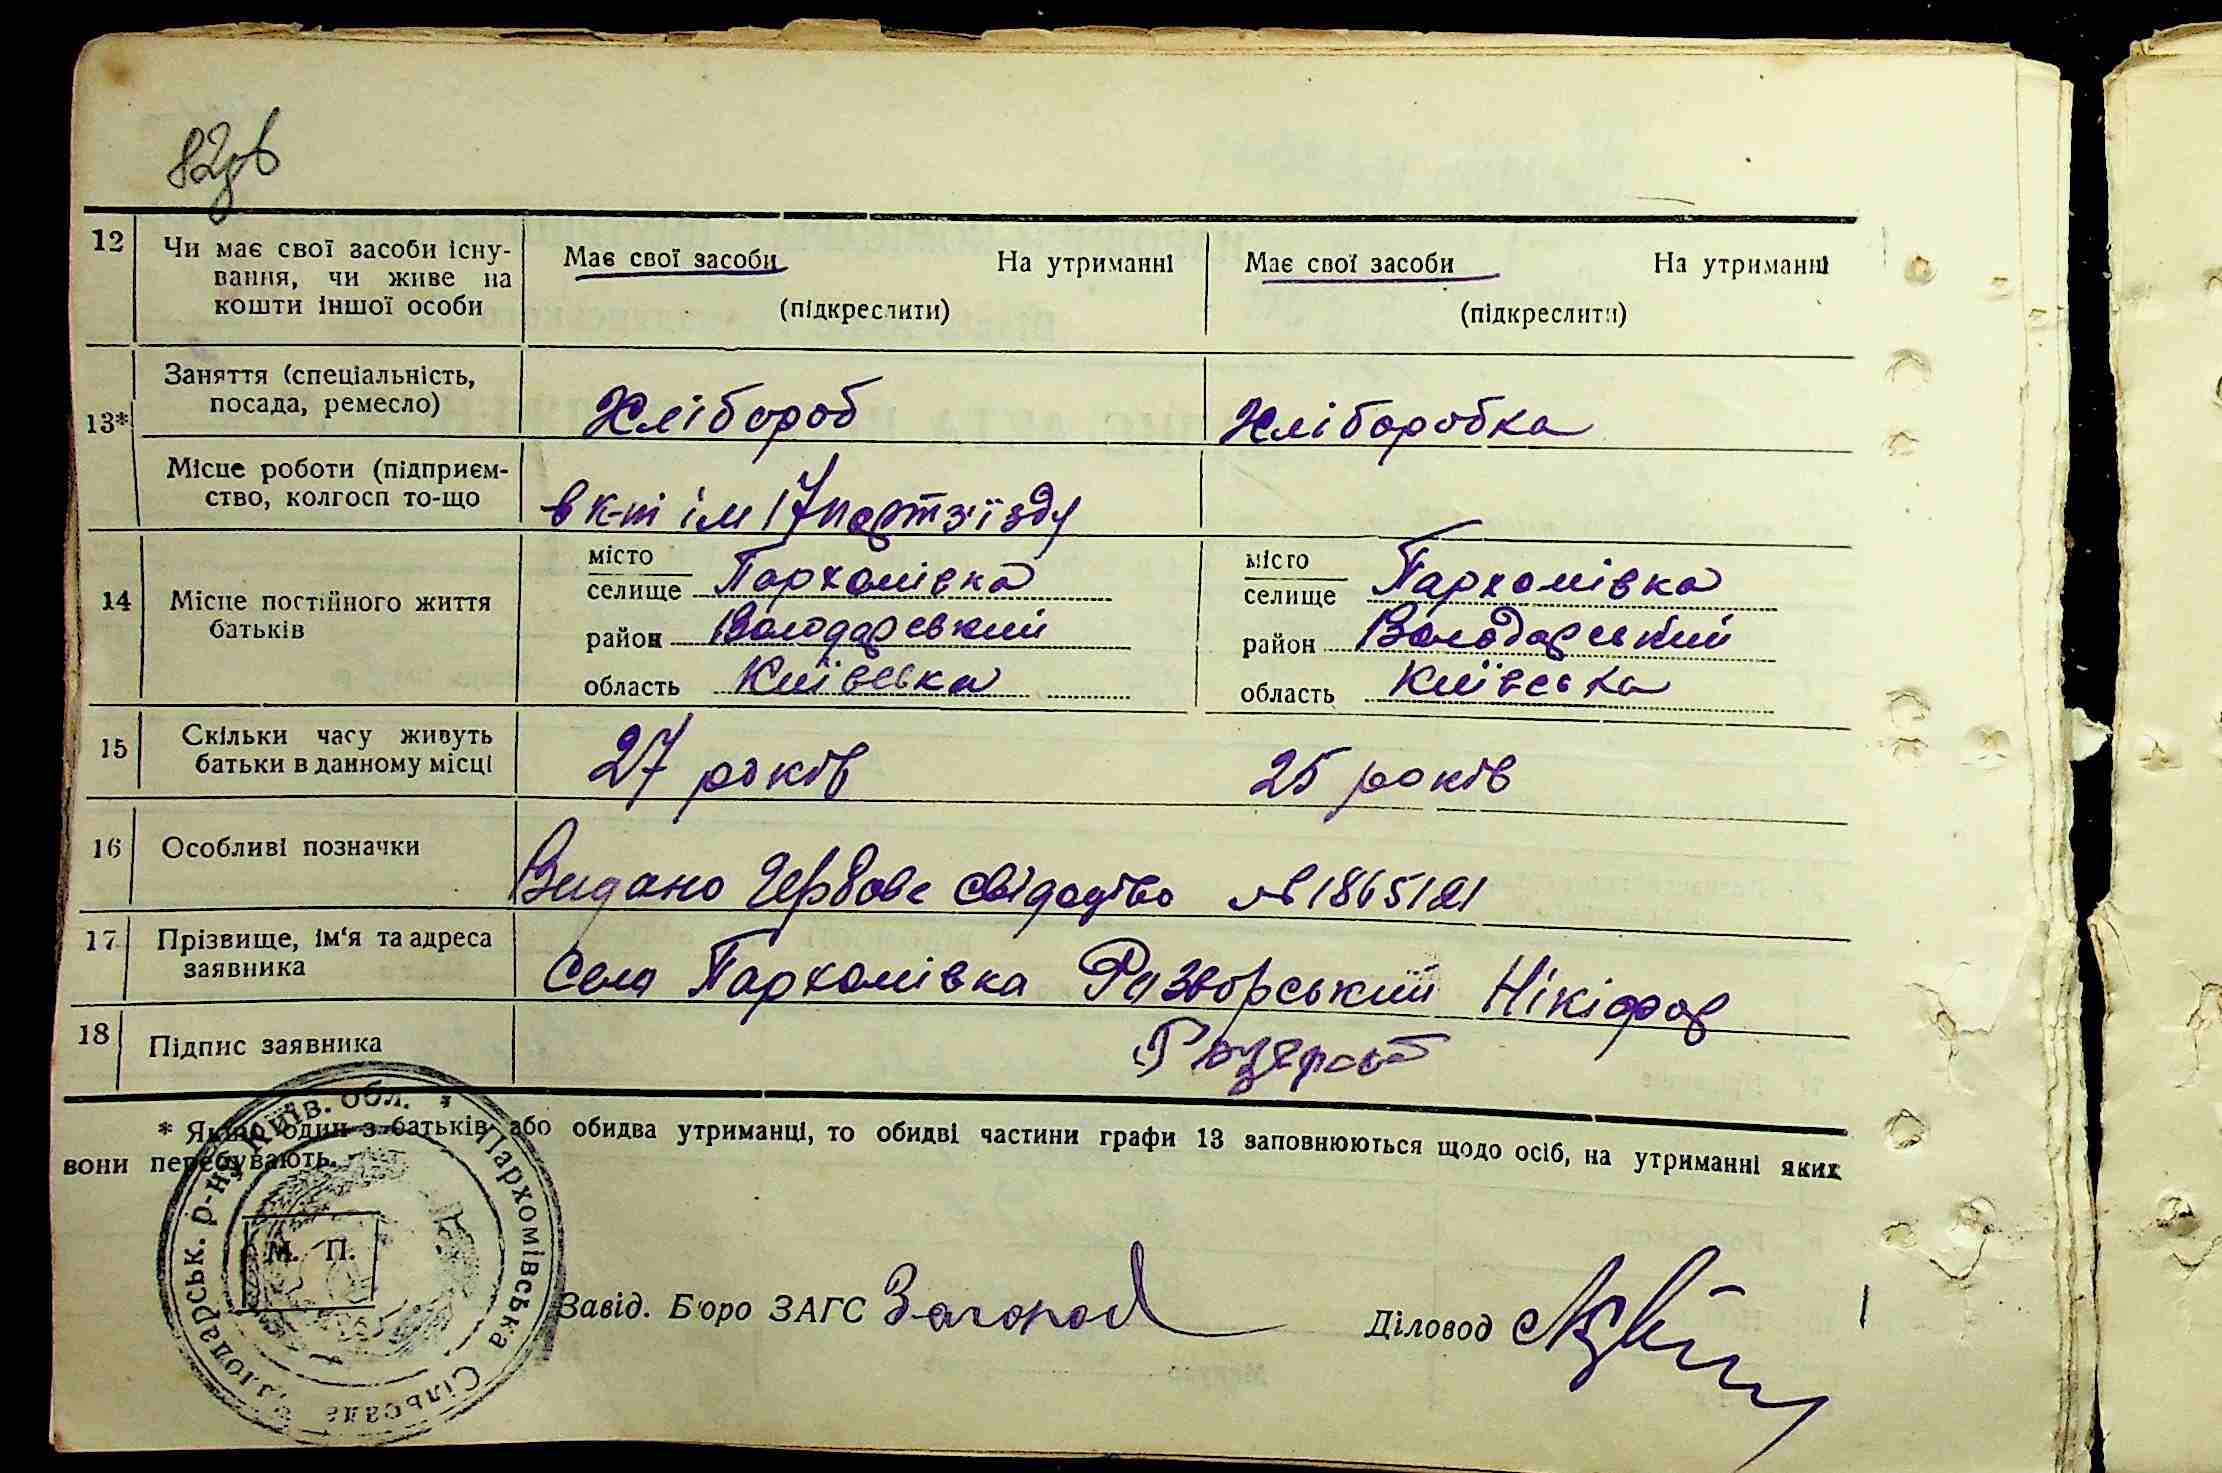 82зв
12 Чи має свої засоби існу-
вання, чи живе на
кошти іншої особи
Має свої засоби На утриманні
(підкреслити)
Має свої засоби На утриманні
(підкреслити)
13*
Заняття (спеціальність,
посада, ремесло)
Хлібороб
Хліборобка
Місце роботи (підприєм-
ство, колгосп то-що
в к-ті ім 17 партз'їзду
14 Місце постійного життя
батьків
місто
селище Пархомівка
район Володарський
область Київська
місто
селище Пархомівка
район Володарський
область Київська
15 Скільки часу живуть
батьки в данному місці
27 років
25 років
16 Особливі позначки
Видано Гербове свідодтво № 1865121
17 Прізвище, ім‘я та адреса
заявника
Село Пархомівка Разворський Нікіфор
18 Підпис заявника
* Якщо один з батьків або обидва утриманці, то обидві частини графи 13 заповнюються щодо осіб, на утриманні яких
вони перебувають.
М. П.
Пархомівська Сільрада Володарськ. р-ну Київ. обл.
Завід. Бюро ЗАГС Загород
Діловод